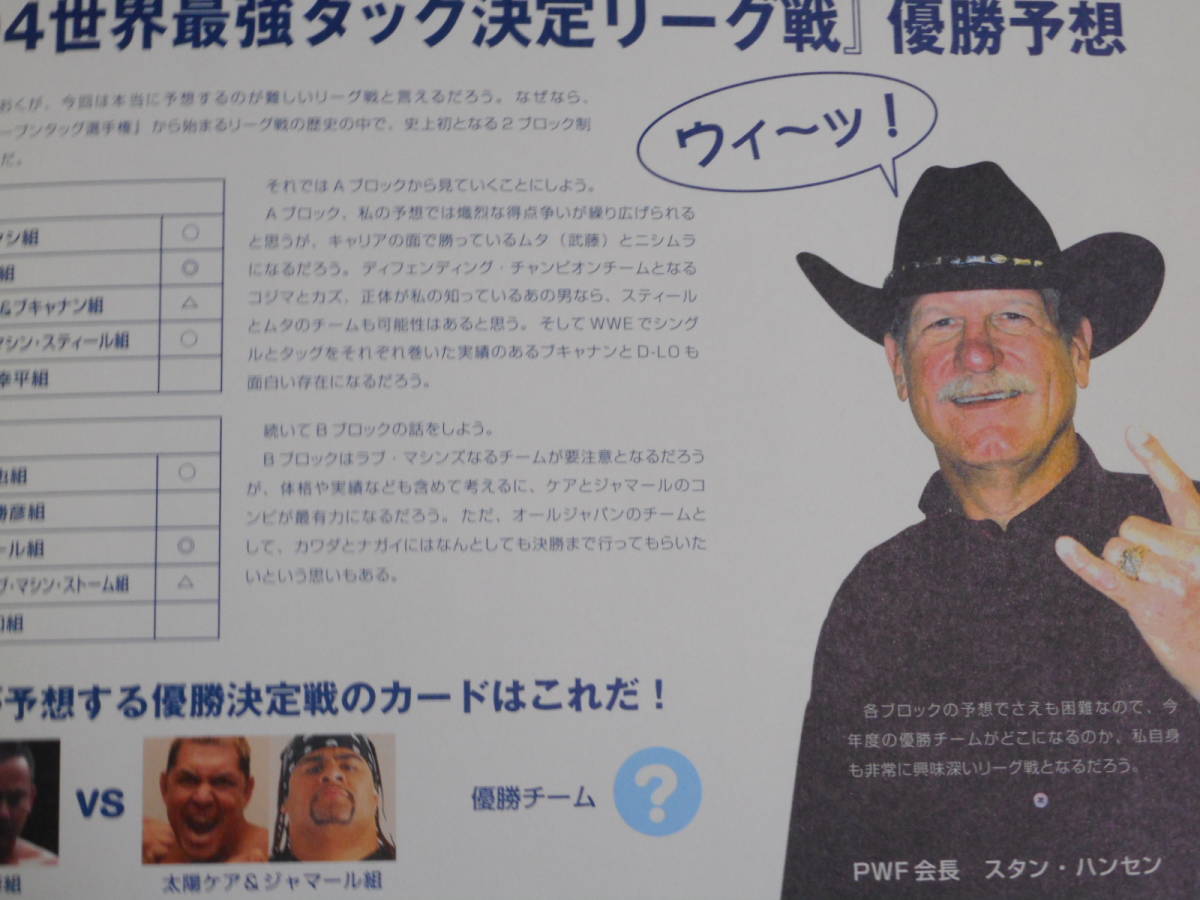 04世界最強タッグ決定リーグ戦』優勝予想
おくが、今回は本当に予想するのが難しいリーグ戦と言えるだろう。なぜなら、
ープンタッグ選手権」から始まるリーグ戦の歴史の中で、史上初となる2ブロック制
だ。
ウィ～ッ！
シ組 ○
組 ◎
&ブキャナン組 △
マシン・スティール組 ○
幸平組
それではAブロックから見ていくことにしよう。
Aブロック、私の予想では熾烈な得点争いが繰り広げられる
と思うが、キャリアの面で勝っているムタ（武藤）とニシムラ
になるだろう。ディフェンディング・チャンピオンチームとなる
コジマとカズ、正体が私の知っているあの男なら、スティール
とムタのチームも可能性はあると思う。そしてWWEでシング
ルとタッグをそれぞれ巻いた実績のあるブキャナンとD-LOも
面白い存在になるだろう。
組 ○
勝彦組
ール組 ◎
ブ・マシン・ストーム組 △
組
続いてBブロックの話をしよう。
Bブロックはラブ・マシンズなるチームが要注意となるだろう
が、体格や実績なども含めて考えるに、ケアとジャマールのコ
ンビが最有力になるだろう。ただ、オールジャパンのチームと
して、カワダとナガイにはなんとしても決勝まで行ってもらいた
いという思いもある。
予想する優勝決定戦のカードはこれだ！
VS
組
太陽ケア&ジャマール組
優勝チーム ?
各ブロックの予想でさえも困難なので、今
年度の優勝チームがどこになるのか、私自身
も非常に興味深いリーグ戦となるだろう。
PWF会長 スタン・ハンセン